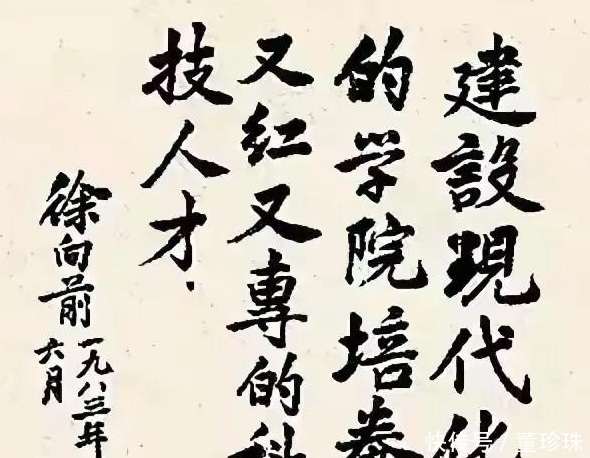 建設現代化
的学院培养
又红又專的科
技人才.
徐向前
一九八三年
六月
快传号/董珍珠